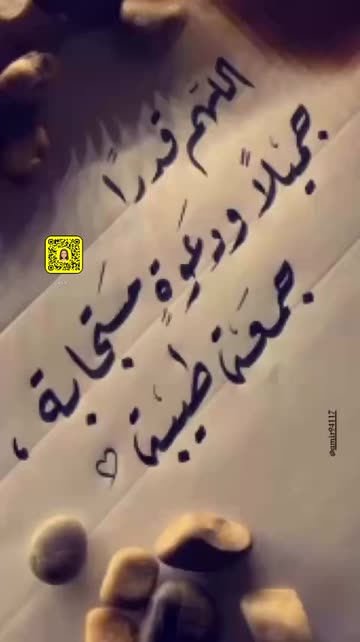 اللهم قدرًا
جميلاً ودعوةٍ مستجابة،
جمعة طيبة ♡
@gmir94117